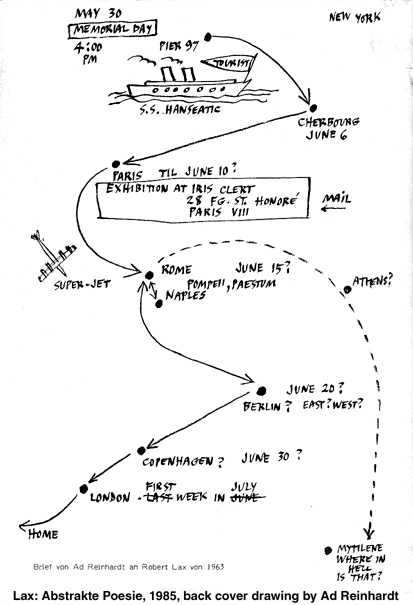 MAY 30
NEW YORK
MEMORIAL DAY
4:00
PM
PIER 97
TOURIST
S.S. HANSEATIC
CHERBOURG
JUNE 6
PARIS TIL JUNE 10?
EXHIBITION AT IRIS CLERT
28 FG. ST. HONORÉ
PARIS VIII
MAIL
SUPER-JET
ROME JUNE 15?
POMPEII, PAESTUM
NAPLES
ATHENS?
JUNE 20?
BERLIN? EAST? WEST?
COPENHAGEN? JUNE 30?
FIRST JULY
LONDON - LAST WEEK IN JUNE
HOME
MYTILENE
WHERE IN
HELL
IS THAT?
Brief von Ad Reinhardt an Robert Lax von 1963
Lax: Abstrakte Poesie, 1985, back cover drawing by Ad Reinhardt